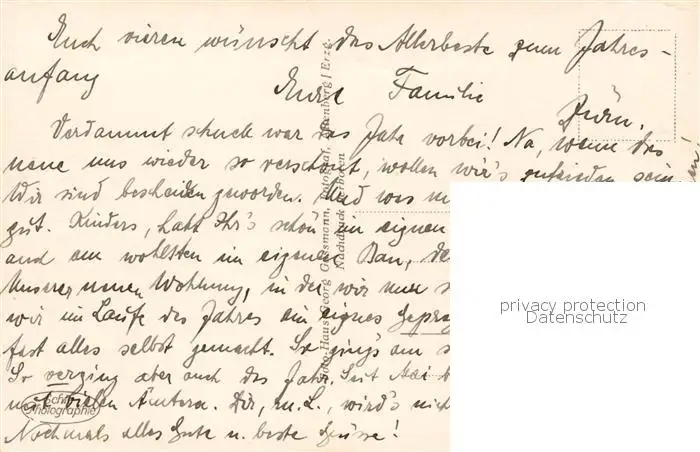 Euch vieren wünscht das Allerbeste zum Jahres-
anfang
Eure Familie
Verdammt schnell war das Jahr vorbei! Na, wenn das
neue uns wieder so verschont, wollen wir's zufrieden sein
Wir sind bescheiden geworden. Und was
gut. Kinders, habt Ihr's schön im eignen
und am wohlsten im eigenen Bau,
Unserer neuen Wohnung, in der wir nun
wir im Laufe des Jahres ein eignes
fast alles selbst gemacht. So ging's am
So verging aber auch das Jahr. Seit Mai
mit vielen Ämtern. Dir, m. L., wird's
Nochmals alles Gute u. beste Grüsse!
Foto-Haus Georg Gussmann, Altenberg/Erzg.
Nachdruck verboten
Echte
Photographie
privacy protection
Datenschutz